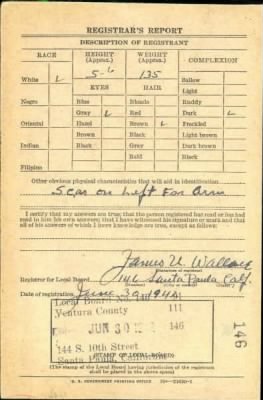 REGISTRAR'S REPORT
DESCRIPTION OF REGISTRANT
RACE HEIGHT (Approx.) WEIGHT (Approx.) COMPLEXION
White L 5-6 135 Sallow
EYES HAIR Light
Negro Blue Blonde Ruddy
Gray L Red Dark L
Oriental Hazel Brown L Freckled
Brown Black Light brown
Indian Black Gray Dark brown
Bald Black
Filipino
Other obvious physical characteristics that will aid in identification
Scar on Left For Arm
I certify that my answers are true; that the person registered has read or has had
read to him his own answers; that I have witnessed his signature or mark and that
all of his answers of which I have knowledge are true, except as follows:
James U. Wallace
Registrar for Local Board 146 Santa Paula Calif.
Date of registration June 30, 194
Local Board No.
Ventura County 111
JUN 30 146
144 S. 10th Street
Santa Paula, California
(STAMP OF LOCAL BOARD)
(The stamp of the Local Board having jurisdiction of the registrant
shall be placed in the above space)
U. S. GOVERNMENT PRINTING OFFICE
146